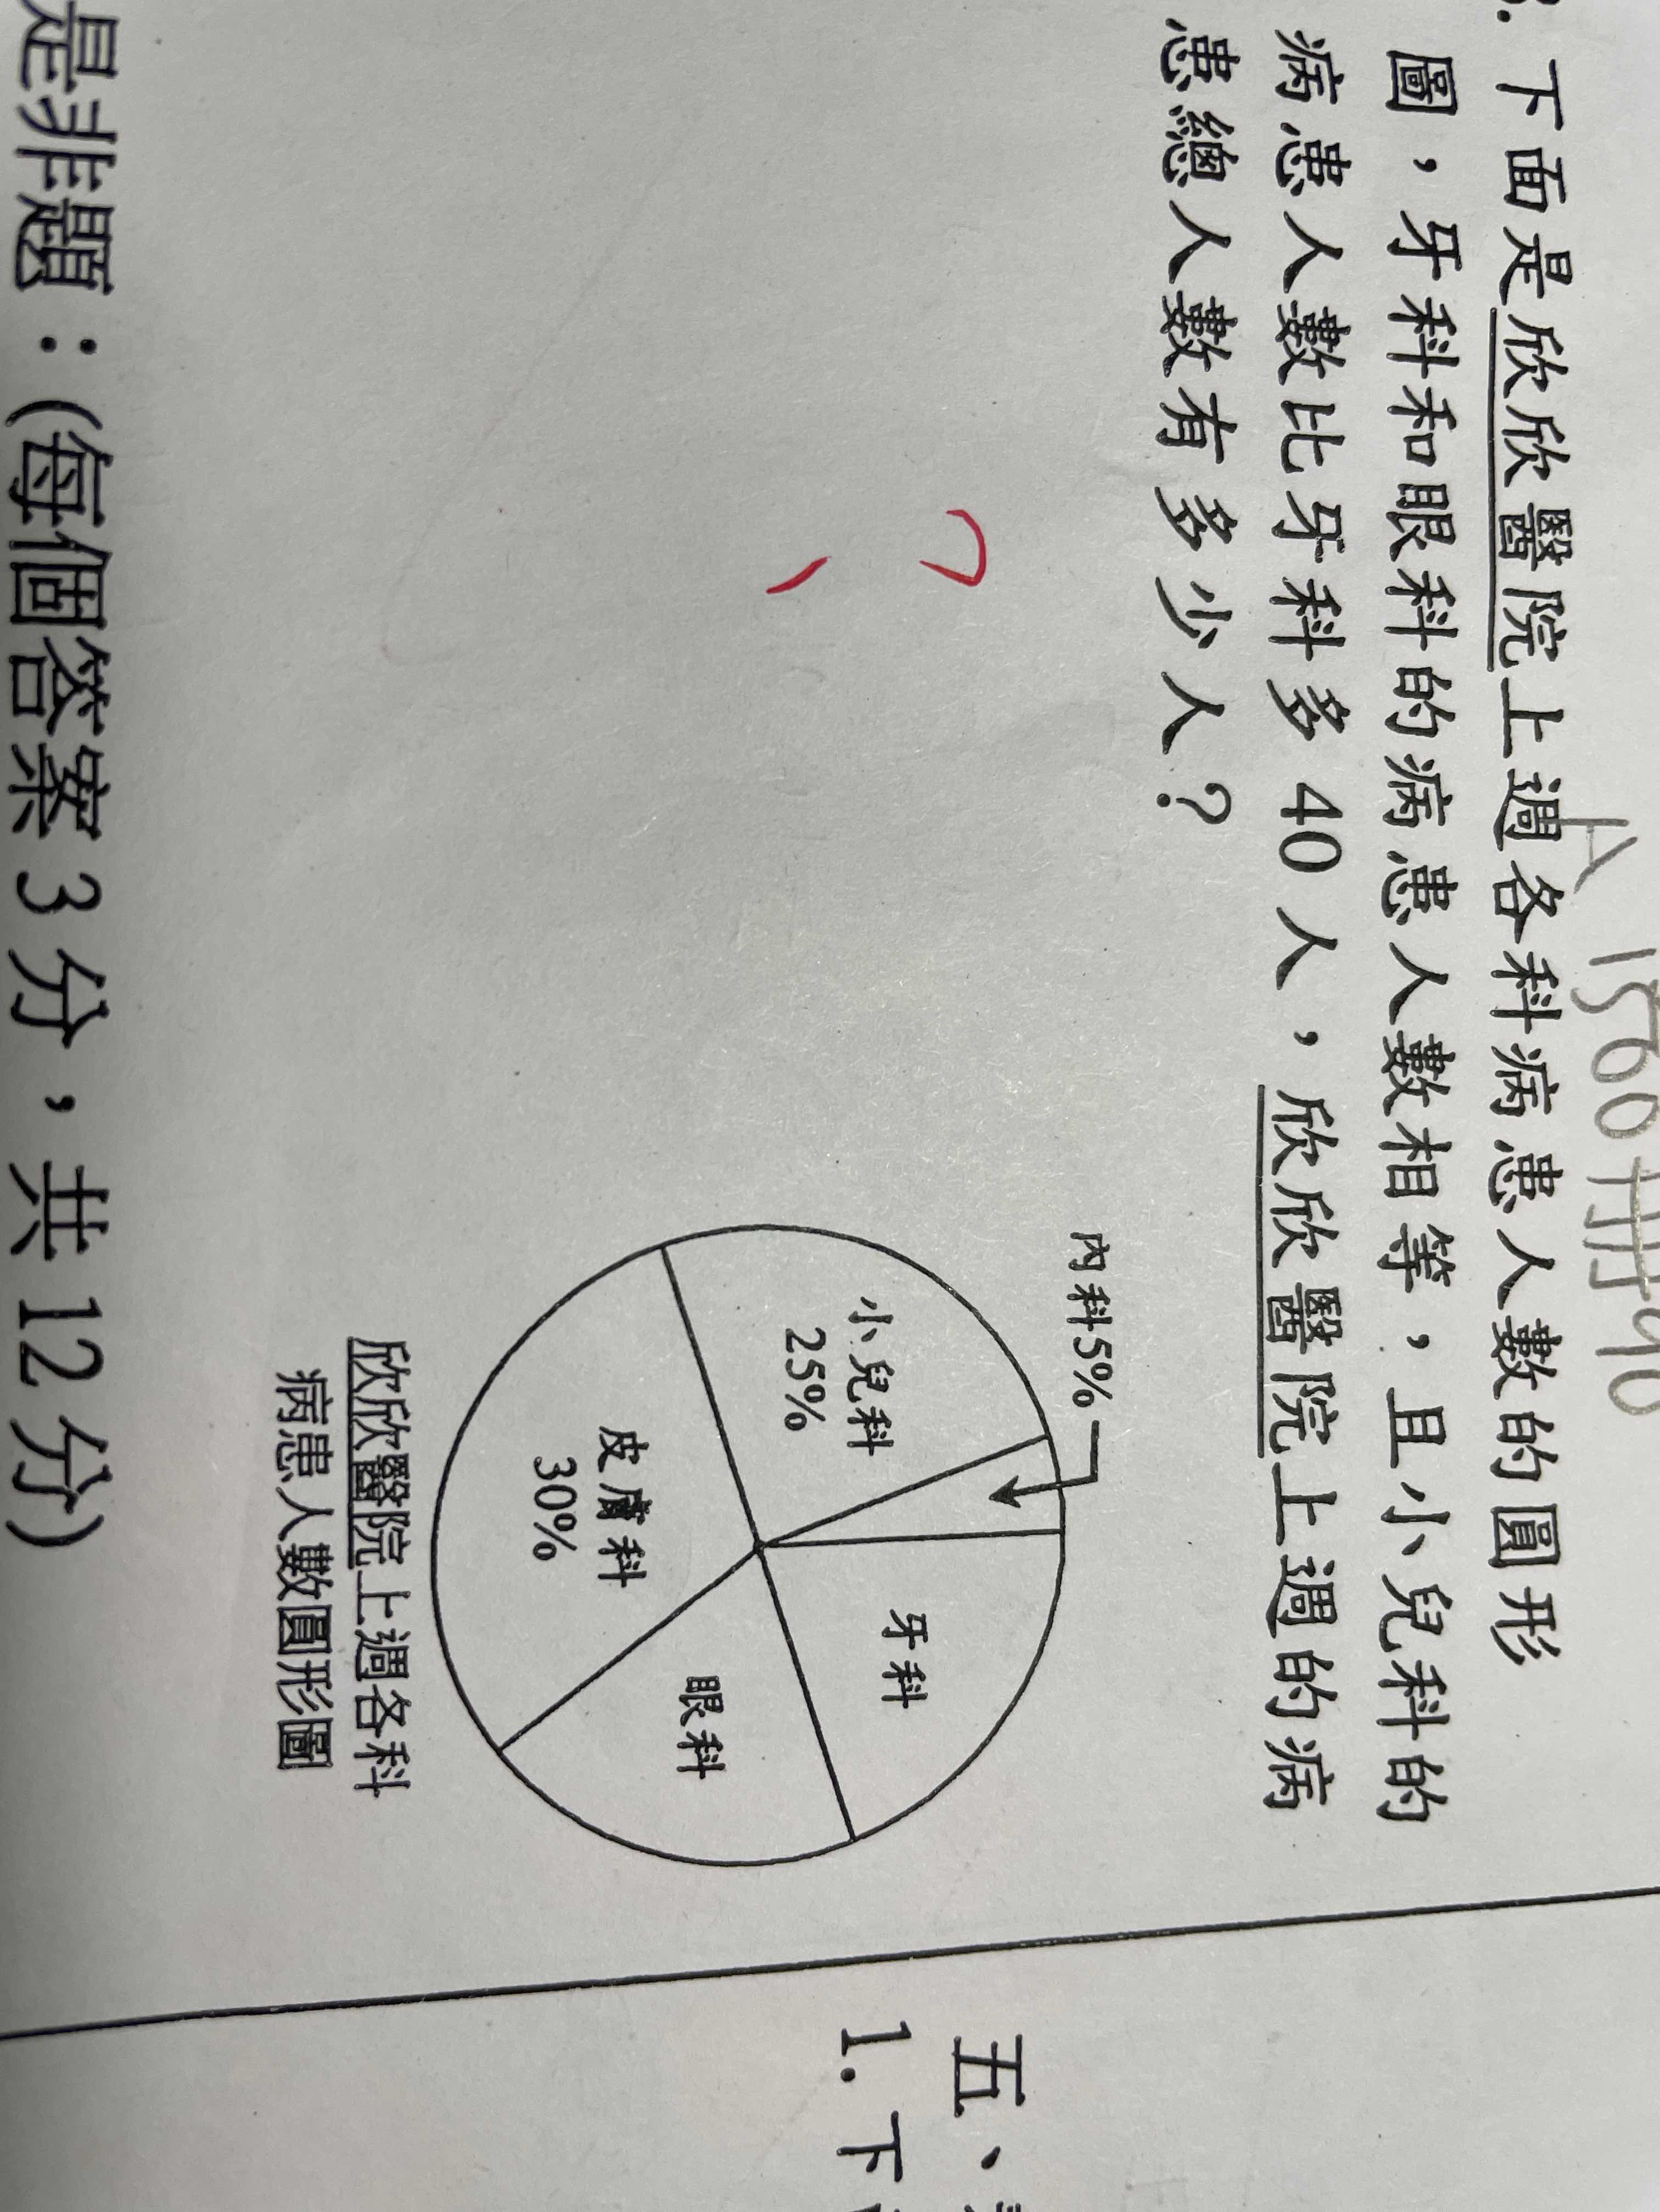 A 1500 90
3. 下面是欣欣醫院上週各科病患人數的圓形
圖，牙科和眼科的病患人數相等，且小兒科的
病患人數比牙科多40人，欣欣醫院上週的病
患總人數有多少人？
內科5%
小兒科
25%
牙科
皮膚科
30%
眼科
欣欣醫院上週各科
病患人數圓形圖
是非題：(每個答案3分，共12分)
五、
1. 下